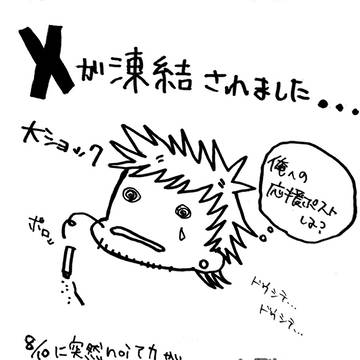 Xが凍結されました...
大ショック
俺への
応援ポスト
は?
ポロッ
ドウシテ...
ドウシテ...
8/10に突然noi